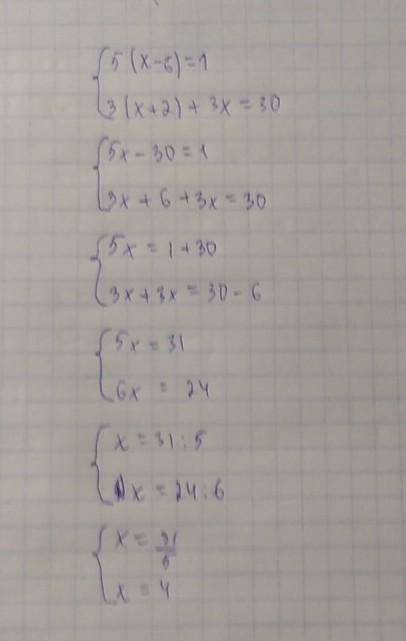 5(x-6)=1
3(x+2)+3x=30
5x-30=1
3x+6+3x=30
5x=1+30
3x+3x=30-6
5x=31
6x=24
x=31:5
x=24:6
x=31/5
x=4